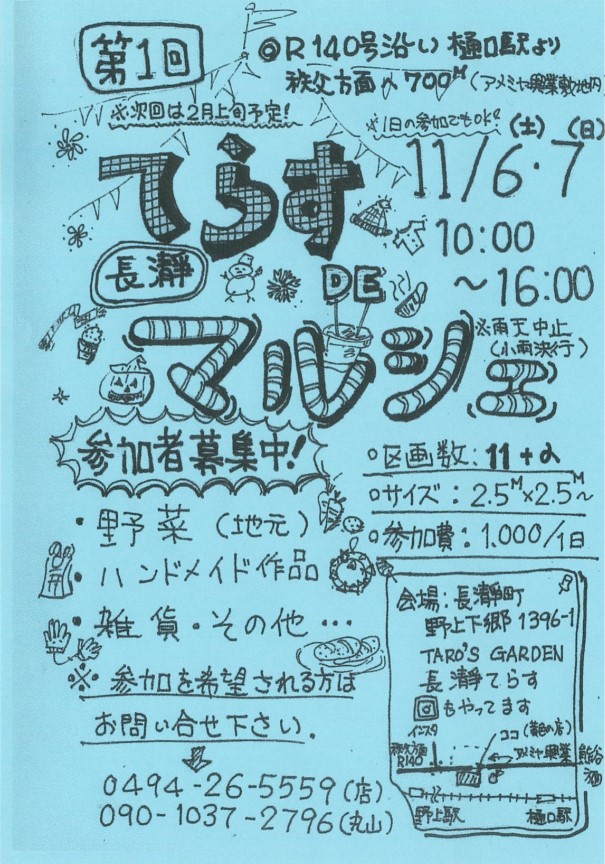 第1回
◎R140号沿い 樋口駅より
秩父方面へ700M(アメミヤ興業敷地内)
※次回は2月上旬予定!
※1日の参加でもOK!
(土) (日)
11/6・7
10:00
〜16:00
てらす
長瀞
DE
マルシェ
※雨天中止
(小雨決行)
参加者募集中!
・野菜(地元)
・ハンドメイド作品
・雑貨・その他…
※参加を希望される方は
お問い合せ下さい.
0494-26-5559(店)
090-1037-2796(丸山)
○区画数:11+α
○サイズ:2.5M×2.5M〜
○参加費:1.000/1日
会場:長瀞町
野上下郷1396-1
TARO'S GARDEN
長瀞てらす
もやってます
インスタ
ココ(黄色の店)
アメミヤ興業
秩父方面
R140
熊谷
方面
野上駅
樋口駅